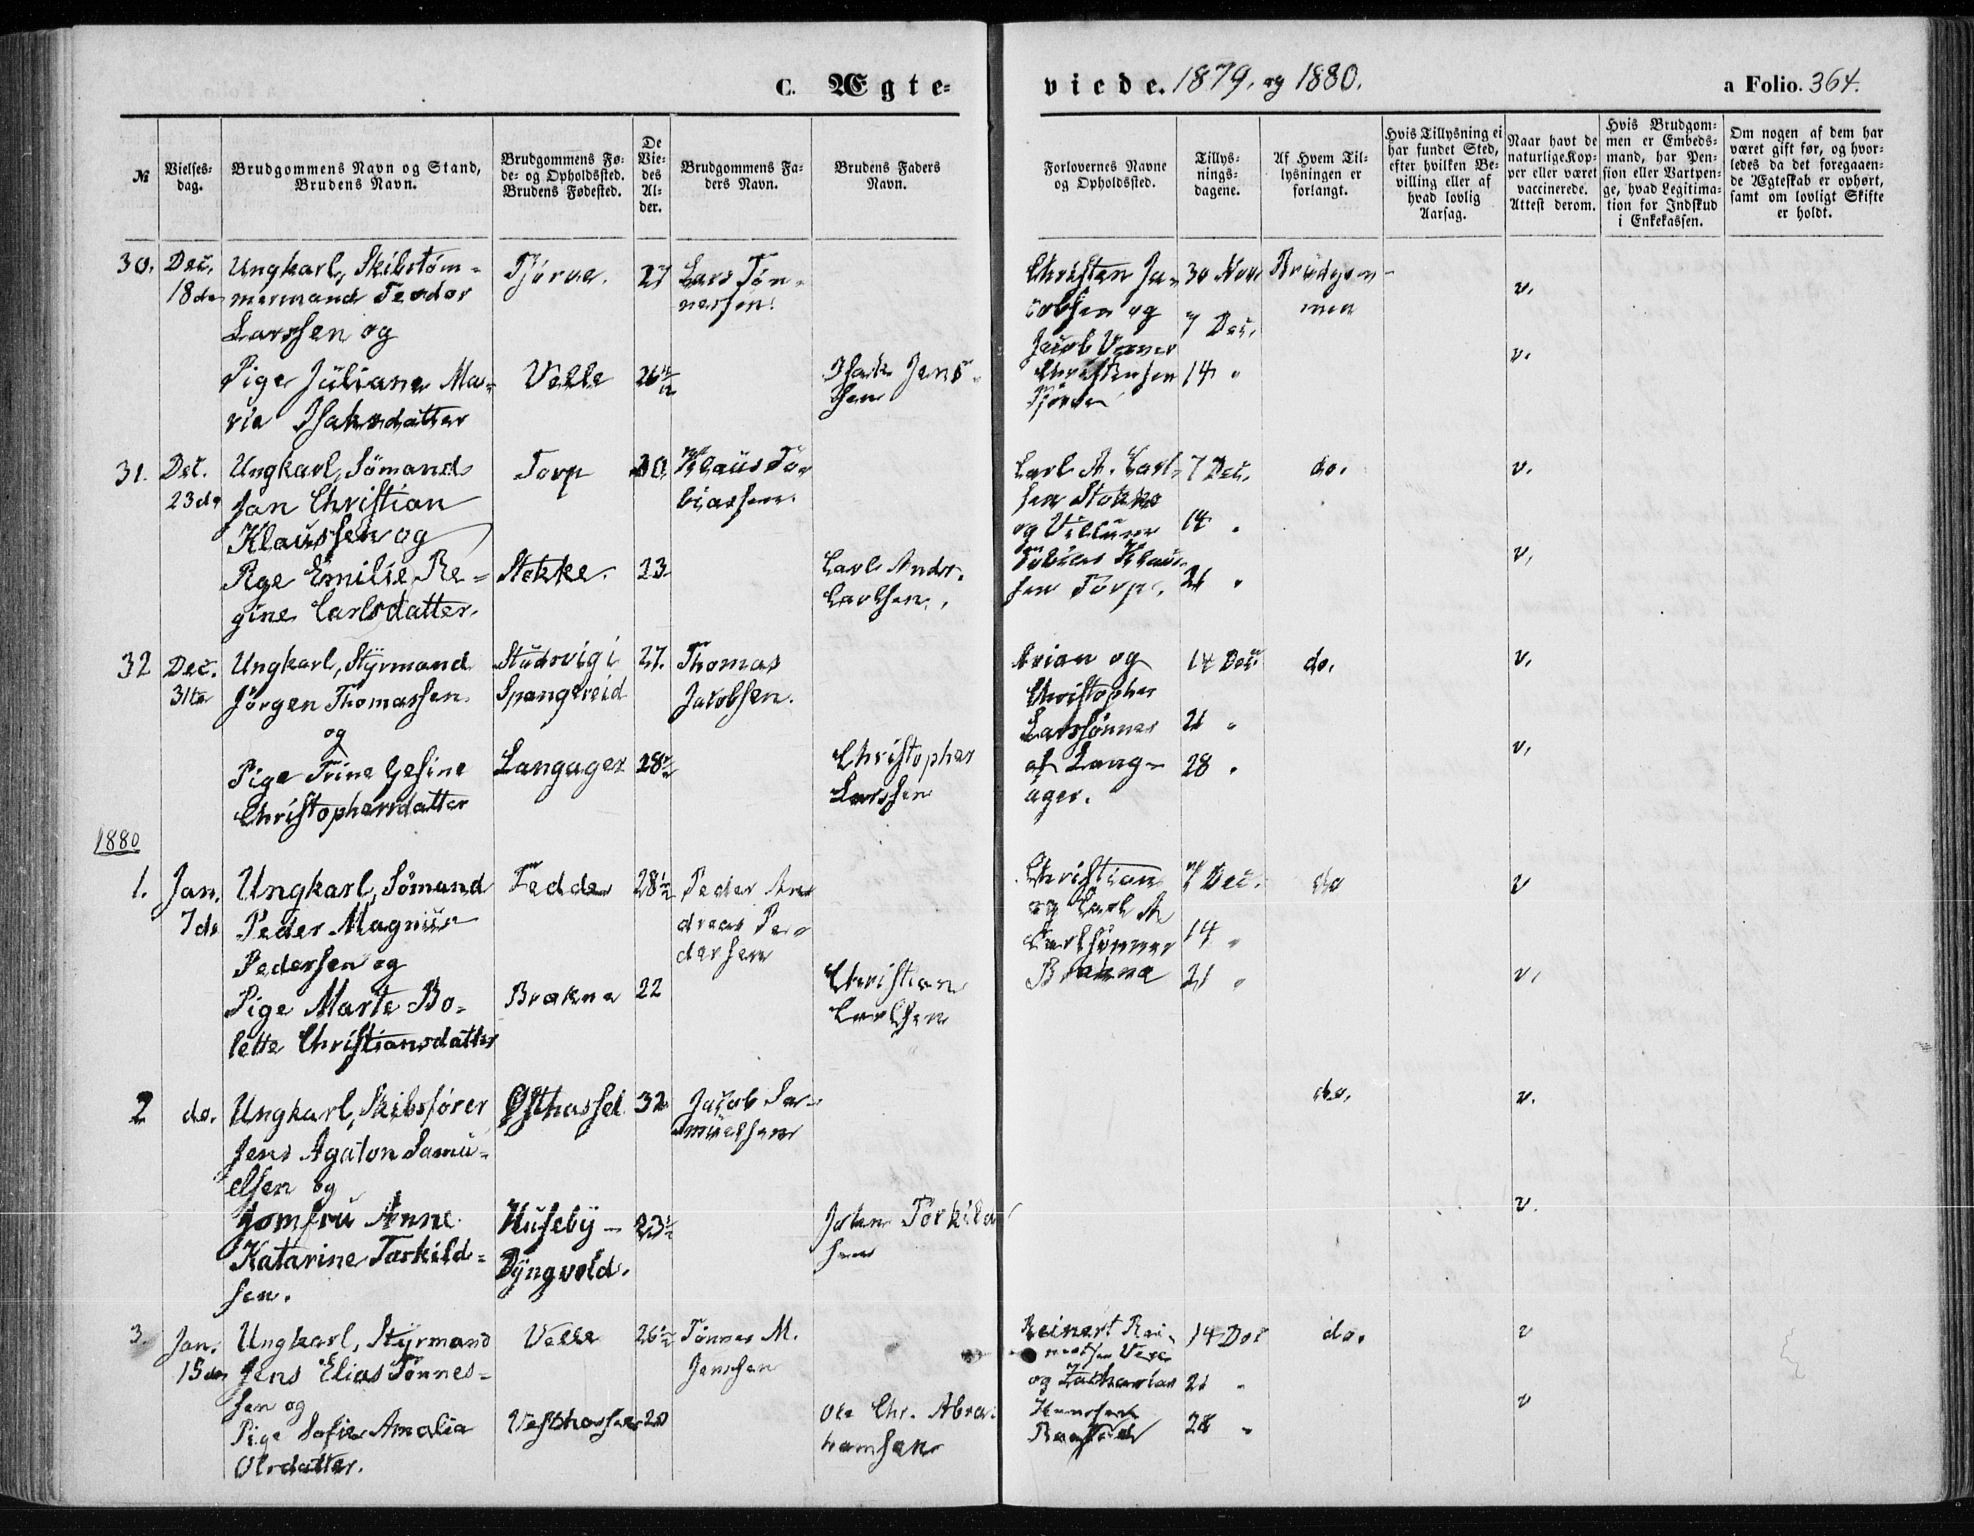 C. Ægte-
viede. 1879. og 1880.
a Folio. 364.
№
Vielses-
dag.
Brudgommens Navn og Stand,
Brudens Navn.
Brudgommens Fø-
de- og Opholdssted.
Brudens Fødested.
De
Vie-
des
Al-
der.
Brudgommens Fa-
ders Navn.
Brudens Faders
Navn.
Forlovernes Navne
og Opholdssted.
Tillys-
nings-
dagene.
Af Hvem Til-
lysningen er
forlangt.
Hvis Tillysning ei
har fundet Sted,
efter hvilken Be-
villing eller af
hvad lovlig
Aarsag.
Naar havt de
naturlige Kop-
per eller været
vaccinerede.
Attest derom.
Hvis Brudgom-
men er Embeds-
mand, har Pen-
sion eller Vartpen-
ge, hvad Legitima-
tion for Indskud
i Enkekassen.
Om nogen af dem har
været gift før, og hvor-
ledes da det foregaaen-
de Ægteskab er ophørt,
samt om lovligt Skifte
er holdt.
30.
Dec.
18de
Ungkarl, Skibstøm-
mermand Teodor
Larssen og
Pige Juliane Ma-
rie Isaksdatter
Tjørve.
Velle
27
26
Lars Tøn-
nessen.
Isak Jens-
sen
Christen Ja-
cobsen og
Jacob
Christensen
Tjørve
30 Nov
7 Dec.
14 "
Brudgom-
men
v.
v.
31.
Dec.
23de
Ungkarl, Sømand
Jan Christian
Klaussen og
Pige Emilie Re-
gine Carlsdatter.
Torp
Stokke.
30
23
Klaus To-
biassen.
Carl Andr.
Carlsen.
Carl A. Carl-
sen Stokke
og
Tobias Klaus-
sen Torp.
7 Dec.
14 "
21 "
do.
v.
v.
32
Dec.
31te
Ungkarl, Styrmand
Jørgen Thomassen
og
Pige Trine Gesine
Christophersdatter
Studsvig i
Spangereid
Langager
27.
28
Thomas
Jacobsen.
Christopher
Larssen
Arian og
Christopher
Larssønner
af Lang-
ager.
14 Dec.
21 "
28 "
do.
v.
v.
1880
1.
Jan.
7de
Ungkarl, Sømand
Peder Magnus
Pedersen og
Pige Marte Bo-
lette Christiansdatter
Vedde
Brekne
28½
22
Peder An-
dreas Pe-
dersen
Christian
Carlsen
Christian
og Carl A
Carlsønner
Brekne
7 Dec.
14 "
21 "
do
v
v.
2
do.
Ungkarl, Skibsfører
Jens Agaton Samu-
elsen og
Jomfru Anne
Katarine Torkild-
sen.
Østhassel
Huseby-
Dyngvold.
32
23½
Jacob Sa-
muelsen
John Torkild-
sen
do.
v.
v.
3.
Jan.
15de
Ungkarl, Styrmand
Jens Elias Tønnes-
sen og
Pige Sofie Amalia
Olsdatter.
Velle
Vesthassel
26½
20
Tønnes M.
Jenssen
Ole Chr. Abra-
hamsen
Reinert Rei-
nertsen Vere
og Zacharias
Hanssen
14 Dec
21 "
28 "
do.
v
v